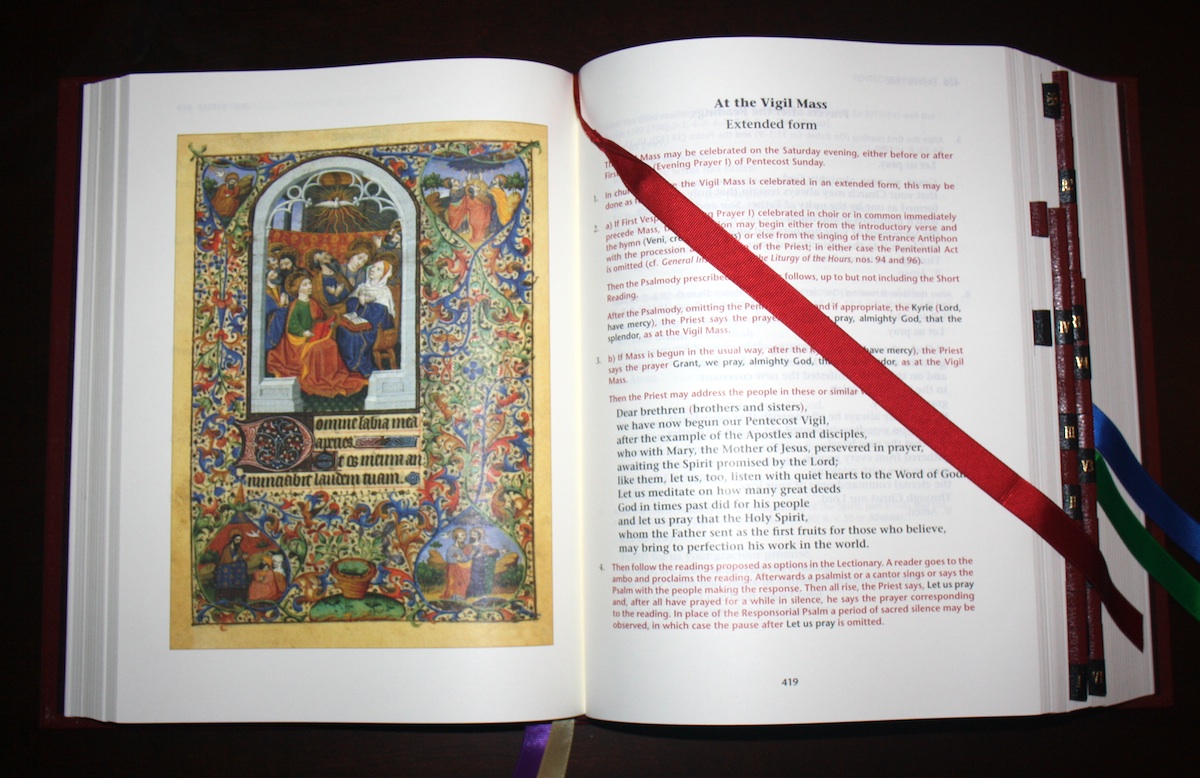 Domine labia mea
aperies
Et os meum an
nunciabit laudem tuam.
At the Vigil Mass
Extended form
Mass may be celebrated on the Saturday evening, either before or after
(Evening Prayer I) of Pentecost Sunday.
1. In the Vigil Mass is celebrated in an extended form, this may be
done as
2. a) If First Prayer I) celebrated in choir or in common immediately
precede Mass, may begin either from the introductory verse and
the hymn (Veni, or else from the singing of the Entrance Antiphon
with the procession of the Priest; in either case the Penitential Act
is omitted (cf. General the Liturgy of the Hours, nos. 94 and 96).
Then the Psalmody prescribed follows, up to but not including the Short
Reading.
After the Psalmody, omitting the and if appropriate, the Kyrie (Lord,
have mercy), the Priest says the prayer pray, almighty God, that the
splendor, as at the Vigil Mass.
3. b) If Mass is begun in the usual way, after the have mercy), the Priest
says the prayer Grant, we pray, almighty God, as at the Vigil
Mass.
Then the Priest may address the people in these or similar
Dear brethren (brothers and sisters),
we have now begun our Pentecost Vigil,
after the example of the Apostles and disciples,
who with Mary, the Mother of Jesus, persevered in prayer,
awaiting the Spirit promised by the Lord;
like them, let us, too, listen with quiet hearts to the Word of God.
Let us meditate on how many great deeds
God in times past did for his people
and let us pray that the Holy Spirit,
whom the Father sent as the first fruits for those who believe,
may bring to perfection his work in the world.
4. Then follow the readings proposed as options in the Lectionary. A reader goes to the
ambo and proclaims the reading. Afterwards a psalmist or a cantor sings or says the
Psalm with the people making the response. Then all rise, the Priest says, Let us pray
and, after all have prayed for a while in silence, he says the prayer corresponding
to the reading. In place of the Responsorial Psalm a period of sacred silence may be
observed, in which case the pause after Let us pray is omitted.
419
IV
III
V
II
I
VI